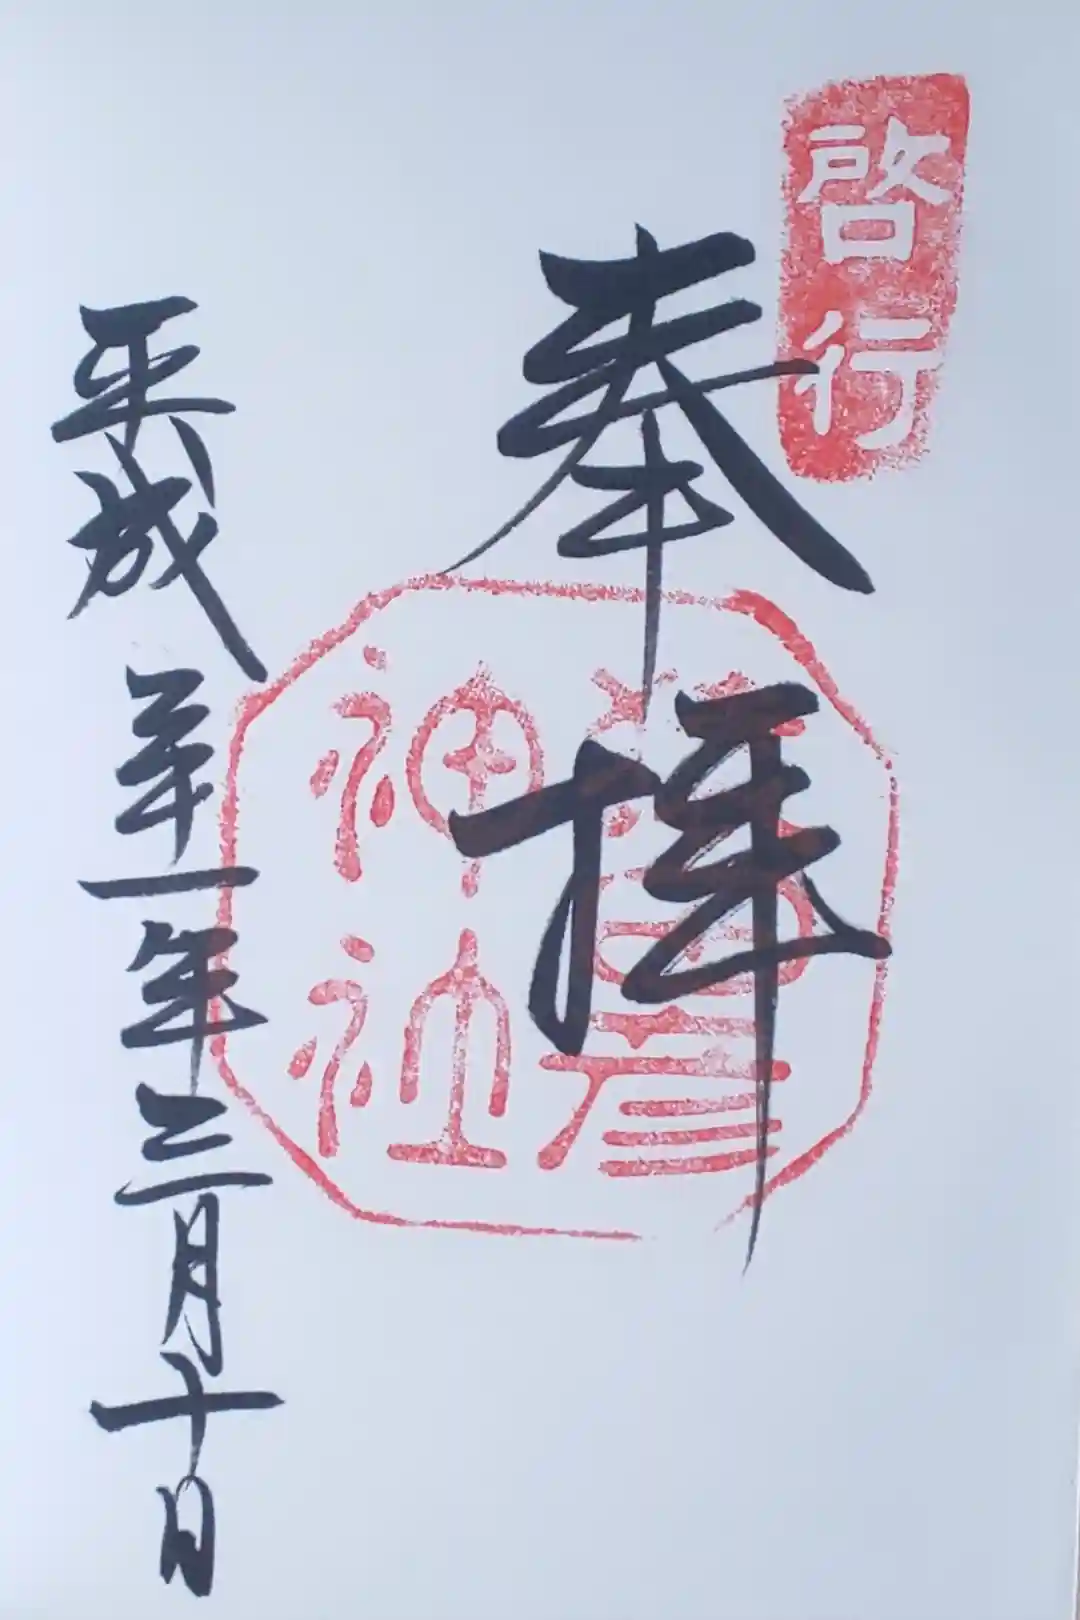 啓行
奉拝
彦
神社
平成三十一年三月十日